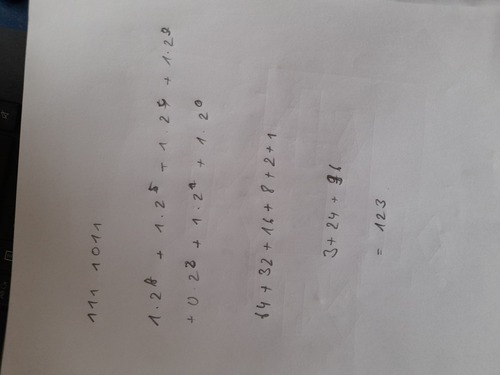 111 1011
1·2⁶ + 1·2⁵ + 1·2⁴ + 1·2³
+ 0·2² + 1·2¹ + 1·2⁰
64 + 32 + 16 + 8 + 2 + 1
3 + 24 + 96
= 123